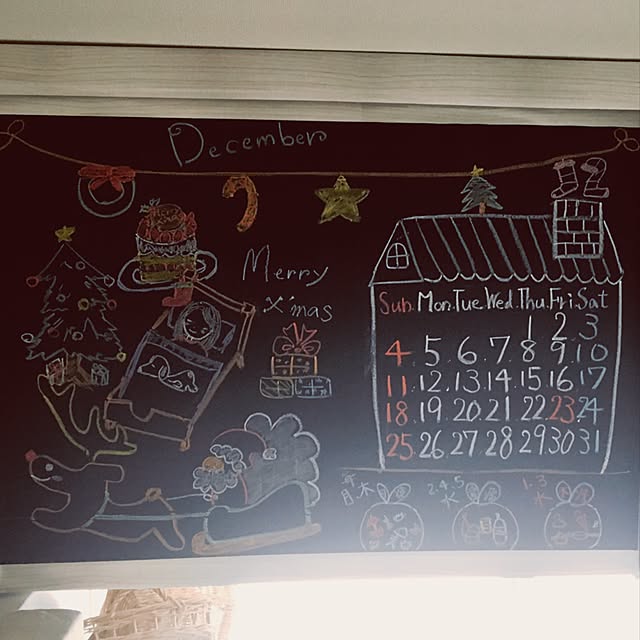 December
Merry
X'mas
Sun. Mon. Tue. Wed. Thu. Fri. Sat
1 2 3
4 5 6 7 8 9 10
11 12 13 14 15 16 17
18 19 20 21 22 23 24
25 26 27 28 29 30 31
毎
月 木
2.4.5
水
1.3
水